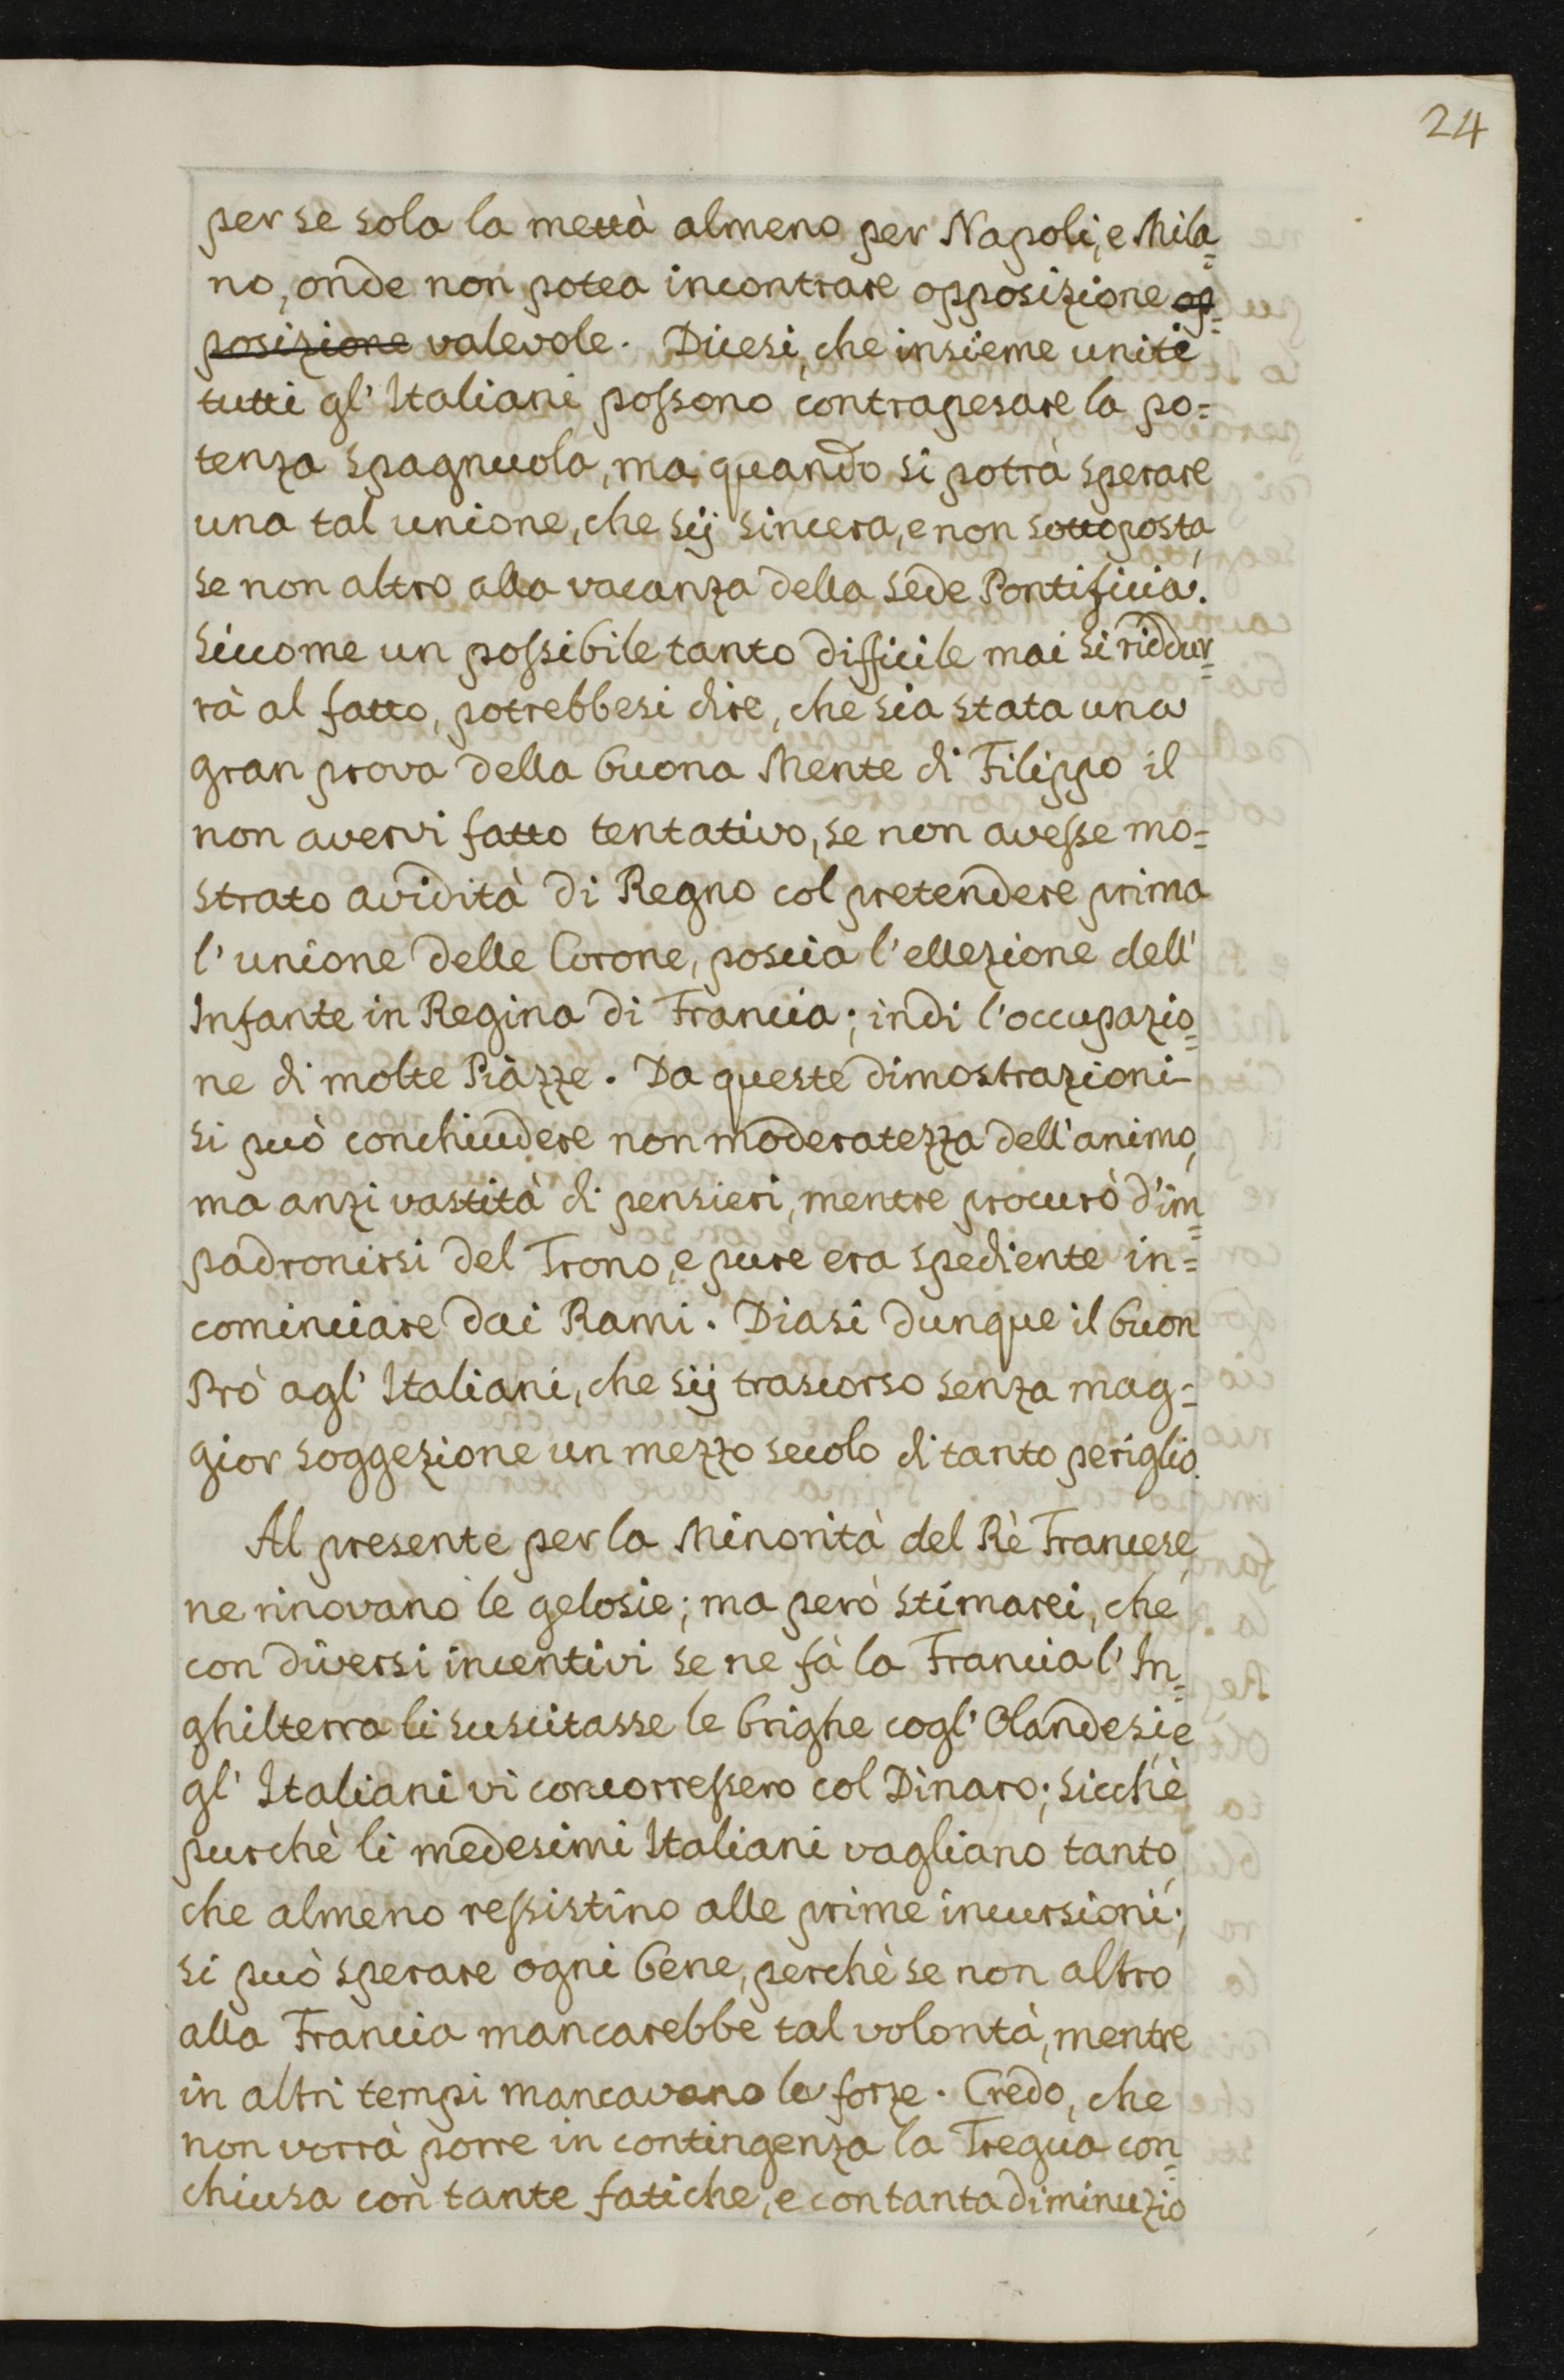 24
per se sola la mettà almeno per Napoli, e Mila=
no, onde non potea incontrare opposizione op=
posizione valevole. Dicesi, che insieme uniti
tutti gl' Italiani possono contrapesare la po=
tenza spagnuola, ma quando si potrà sperare
una tal unione, che sij sincera, e non sottoposta,
se non altro alla vacanza della sede Pontificia.
Siccome un possibile tanto difficile mai si riddur=
rà al fatto, potrebbesi dire, che sia stata una
gran prova della buona Mente di Filippo il
non avervi fatto tentativo, se non avesse mo=
strato avidità di Regno col pretendere prima
l'unione delle Corone, poscia l'ellezione dell'
Infante in Regina di Francia; indi l'occupazio=
ne di molte Piazze. Da queste dimostrazioni
si può conchiudere non moderatezza dell'animo,
ma anzi vastità di pensieri, mentre procurò d'im=
padronirsi del Trono, e pure era spediente in=
cominciare dai Rami. Diasi dunque il buon
Prò agl' Italiani, che sij trascorso senza mag=
gior soggezione un mezzo secolo di tanto periglio.
Al presente per la Minorità del Rè Francese,
ne rinovano le gelosie; ma però stimarei, che
con diversi incentivi se ne fà la Francia l'In=
ghilterra li suscitasse le brighe cogl' Olandesi, e
gl' Italiani vi concorressero col Dinaro; sicchè
purchè li medesimi Italiani vagliano tanto,
che almeno ressistino alle prime incursioni;
si può sperare ogni bene, perchè se non altro
alla Francia mancarebbe tal volontà, mentre
in altri tempi mancavano le forze. Credo, che
non vorrà porre in contingenza la Tregua con=
chiusa con tante fatiche, e con tanta diminuzio